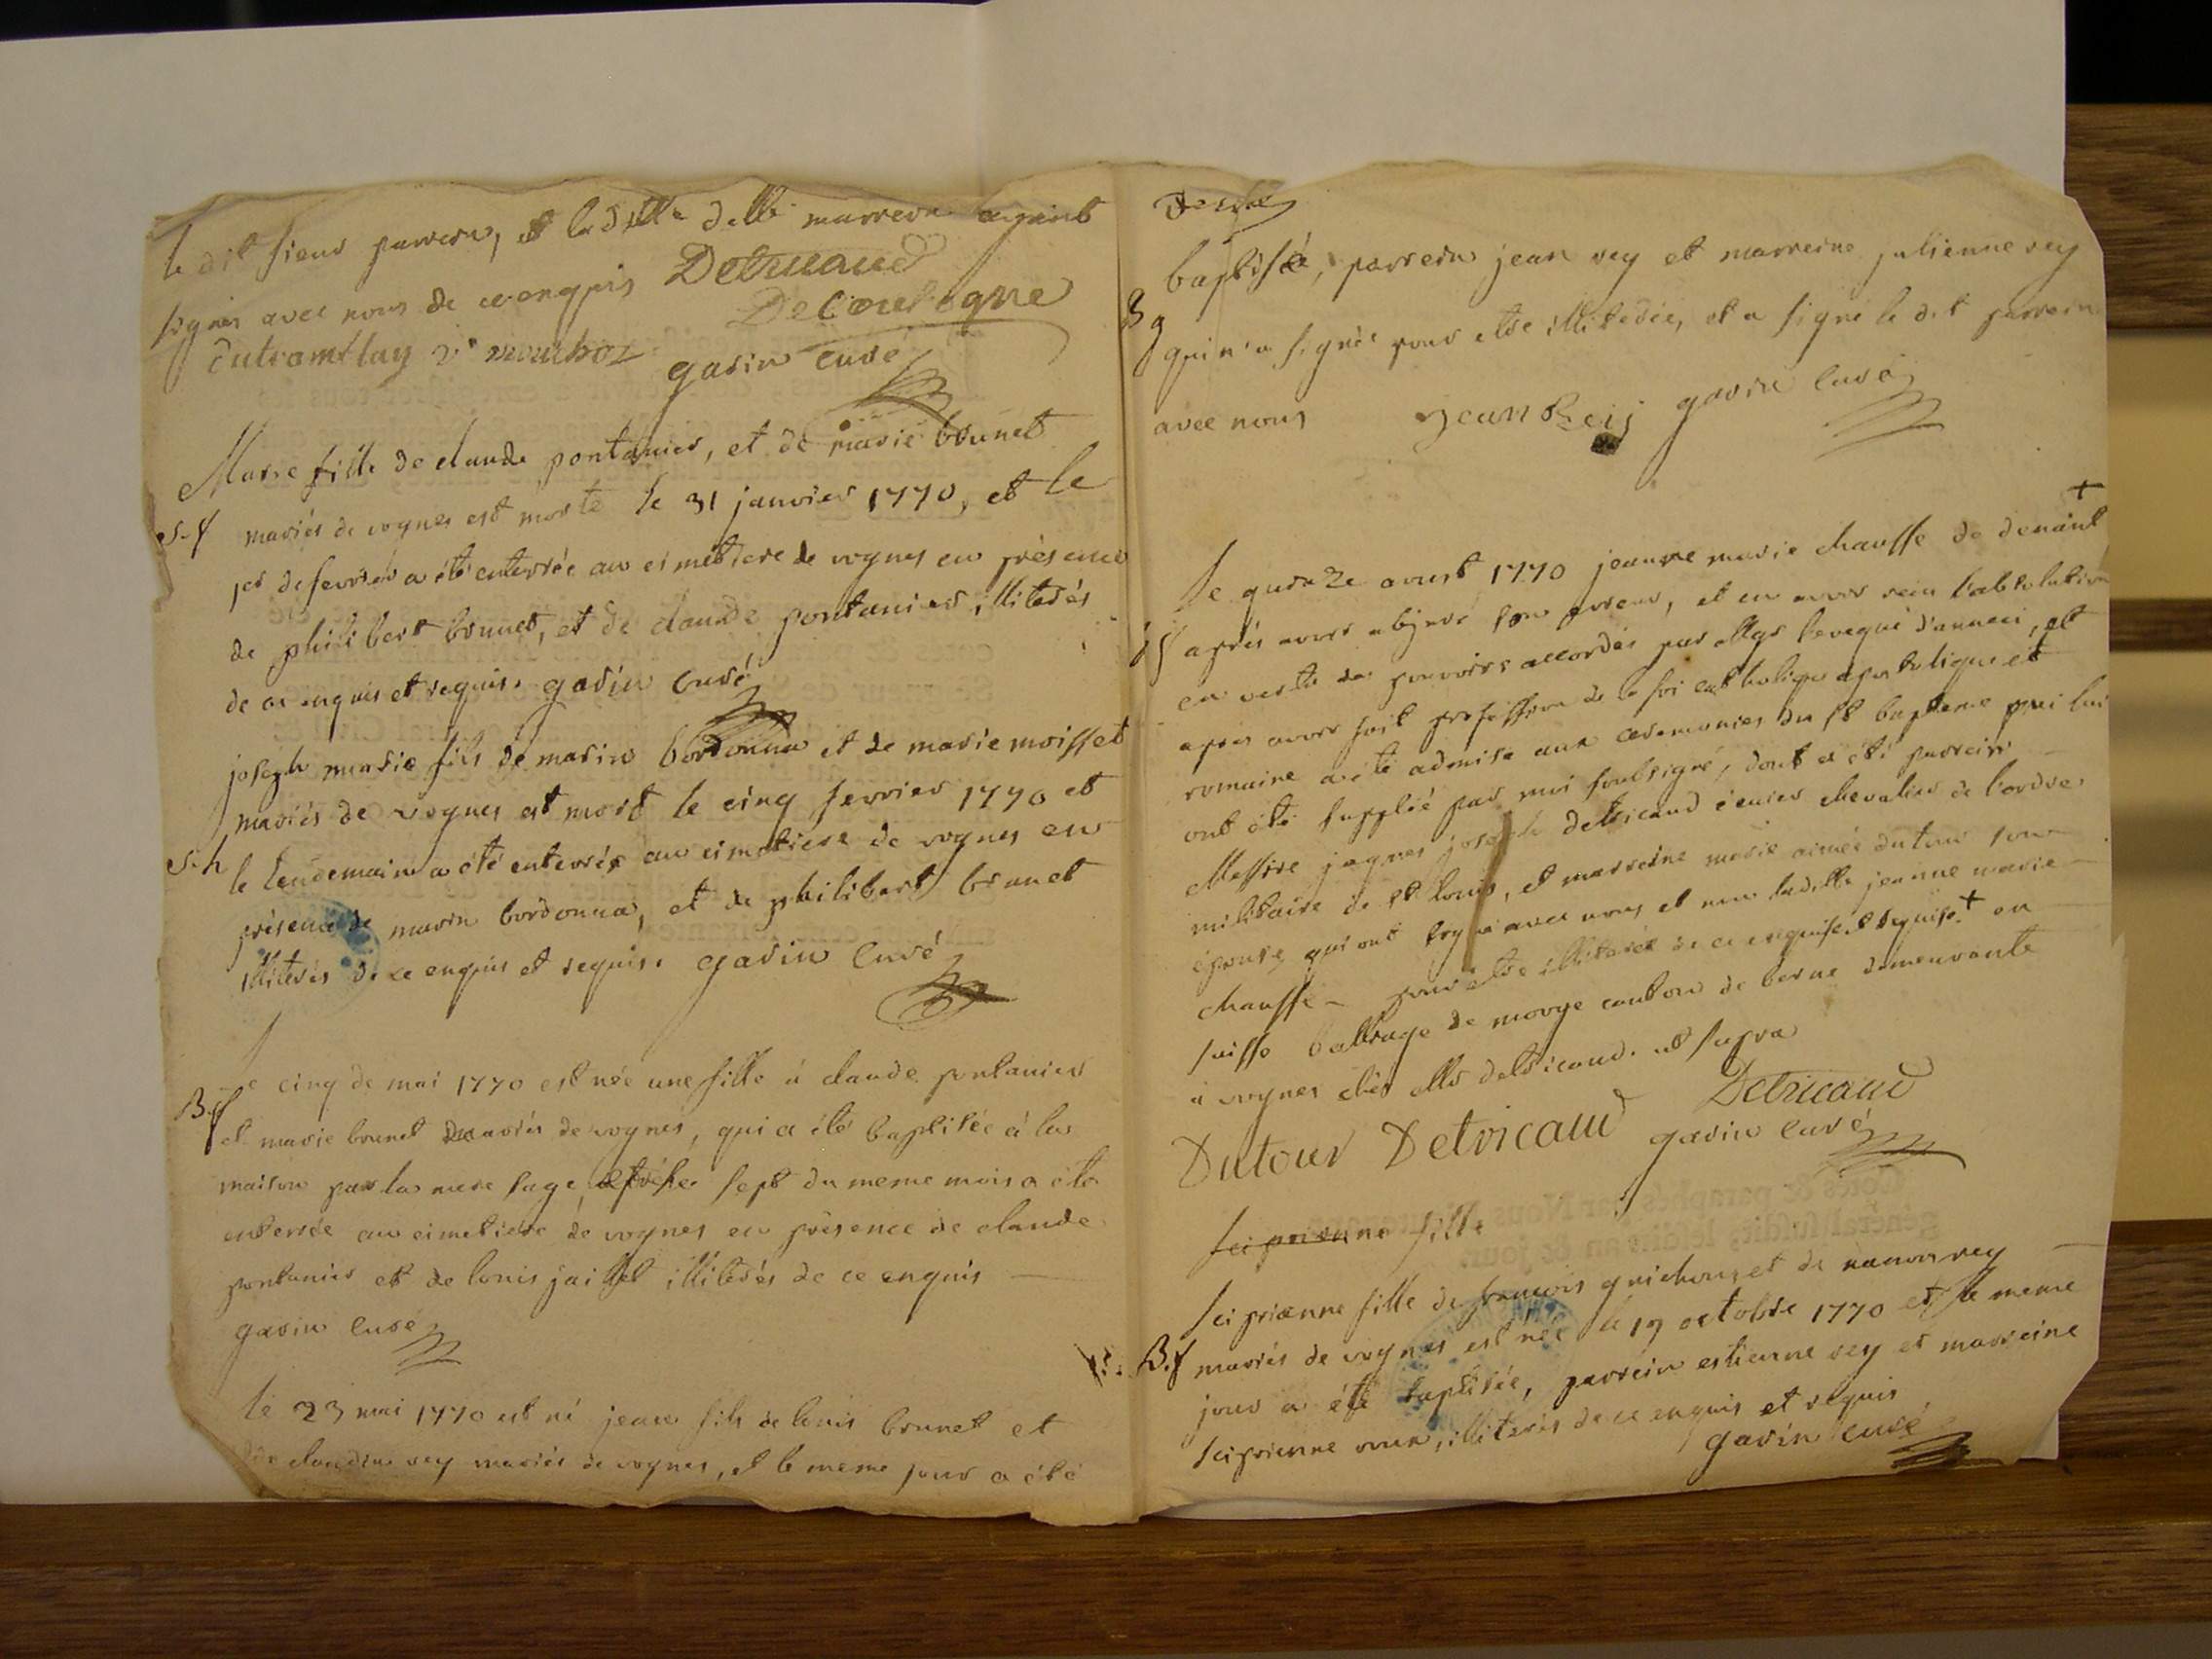 le dit sieur parrein, et la ditte delle marreine ayant
signés avec nous de ce enquis Detricaud
Decoulogne
dutramblay garin curé
Marie fille de claude pontanier, et de marie brunet
S.f mariés de vognes est morte le 31 janvier 1770, et le
1er de fevrier a été enterrée au cimetiere de vognes en présence
de philibert brunet, et de claude pontanier, illiterés
de ce enquis et requis. garin curé
joseph marie fils de marin bordonna et de marie moisset
mariés de vognes est mort le cinq fevrier 1770 et
S.h le lendemain a été enterré au cimetiere de vognes en
présence de marin bordonna, et de philibert brunet
illiterés de ce enquis et requis. garin curé
Le cinq de mai 1770 est née une fille à claude pontanier
B.f et marie brunet mariés de vognes, qui a été baptisée à la
maison par la mere sage, et le sept du meme mois a été
enterrée au cimetiere de vognes en présence de claude
pontanier et de louis jaillet illiterés de ce enquis
garin curé
le 23 mai 1770 est né jean fils de louis brunet et
de claudine rey mariés de vognes, et le meme jour a été
baptisé, parrein jean rey et marreine julienne rey
B g qui n'a signée pour etre illiterée, et a signé le dit parrein
avec nous jean Reij garin curé
+
le quinze aoust 1770 jeanne marie chausse de denant
après avoir abjuré son erreur, et en avoir reçu l'absolution
en vertu des pouvoirs accordés par Mgr l'eveque d'anneci, et
apres avoir fait profession de la foi catholique apostolique et
romaine a été admise aux ceremonies du st bapteme qui lui
ont été supplié par moi soubsigné, dont a été parrein
Messire jaques joseph detricaud écuier chevalier de l'ordre
militaire de st louis, et marreine marie aimée dutour son
épouse, qui ont signé avec nous et non laditte jeanne marie
chausse pour etre illiterée de ce enquise et requise. + en
suisse balliage de morge canton de berne demeurante
à vognes chés Mr detricaud. ut supra
Dutour Detricaud Detricaud
garin curé
sciprienne fille
sciprienne fille de françois guichon, et de nanon rey
B.f mariés de vognes est née le 19 octobre 1770 et le meme
jour a été baptisée, parrein estienne rey et marreine
sciprienne, illiterés de ce enquis et requis
garin curé